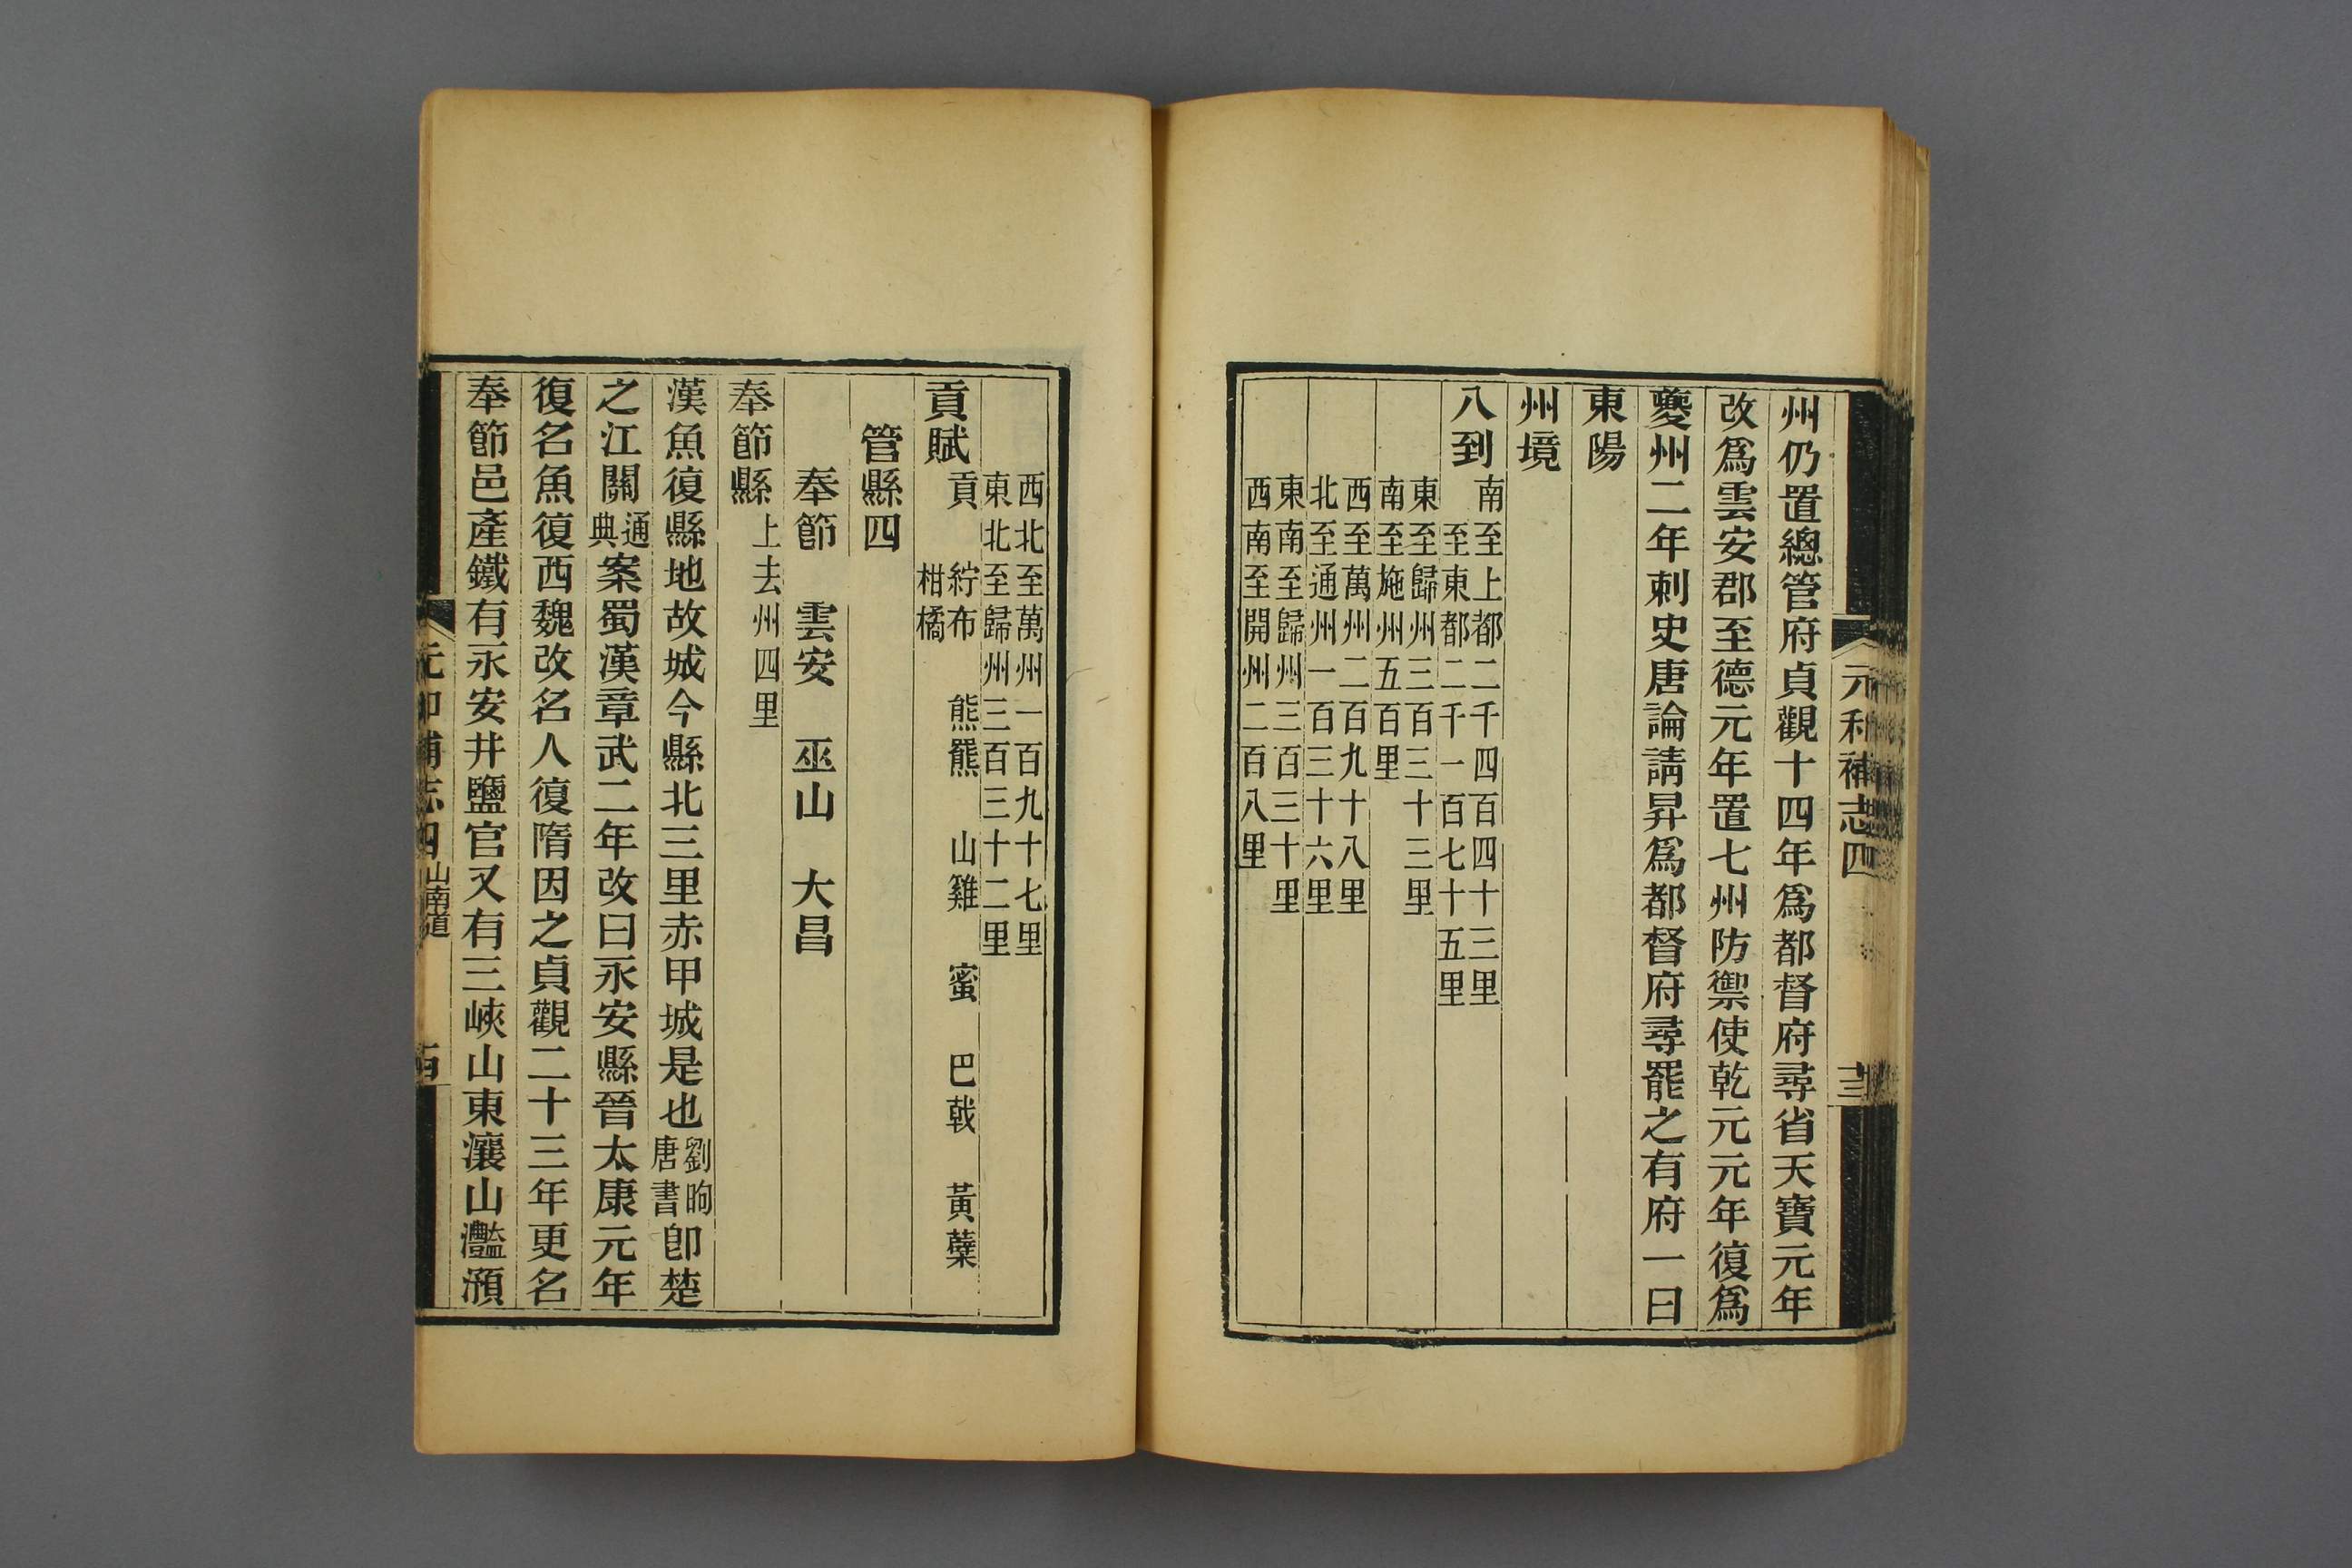 元和補志四
十三
州仍置總管府貞觀十四年爲都督府尋省天寶元年
改爲雲安郡至德元年置七州防禦使乾元元年復爲
夔州二年刺史唐論請昇爲都督府尋罷之有府一曰
東陽
州境
八到
南至上都二千四百四十三里
至東都二千一百七十五里
東至歸州三百三十三里
南至施州五百里
西至萬州二百九十八里
北至通州一百三十六里
東南至歸州三百三十里
西南至開州二百八里
西北至萬州一百九十七里
東北至歸州三百三十二里
貢賦
貢 紵布 熊羆 山雞 蜜 巴戟 黃蘗
柑橘
管縣四
奉節 雲安 巫山 大昌
奉節縣 上去州四里
漢魚復縣地故城今縣北三里赤甲城是也劉昫唐書卽楚
之江關通典案蜀漢章武二年改曰永安縣晉太康元年
復名魚復西魏改名人復隋因之貞觀二十三年更名
奉節邑產鐵有永安井鹽官又有三峽山東瀼山灩澦
補志四 山南道